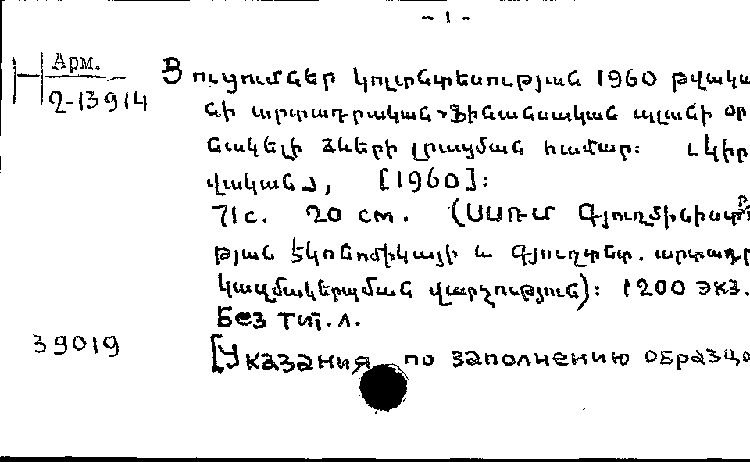 - 1 -
Арм.
2-13914
Ցուցումներ կոլտնտեսության 1960 թվակա
նի արտադրական-ֆինանսական պլանի օր
նակելի ձևերի լրացման համար։ Լկիր
վական⅃, [1960]։
71с. 20 см. (ՍՍՌՄ Գյուղմինիստր
թյան Էկոնոմիկայի և Գյուղտնտ. արտադր
կազմակերպման վարչություն)։ 1200 экз.
Без тит.л.
39019
[Указания по заполнению образцо